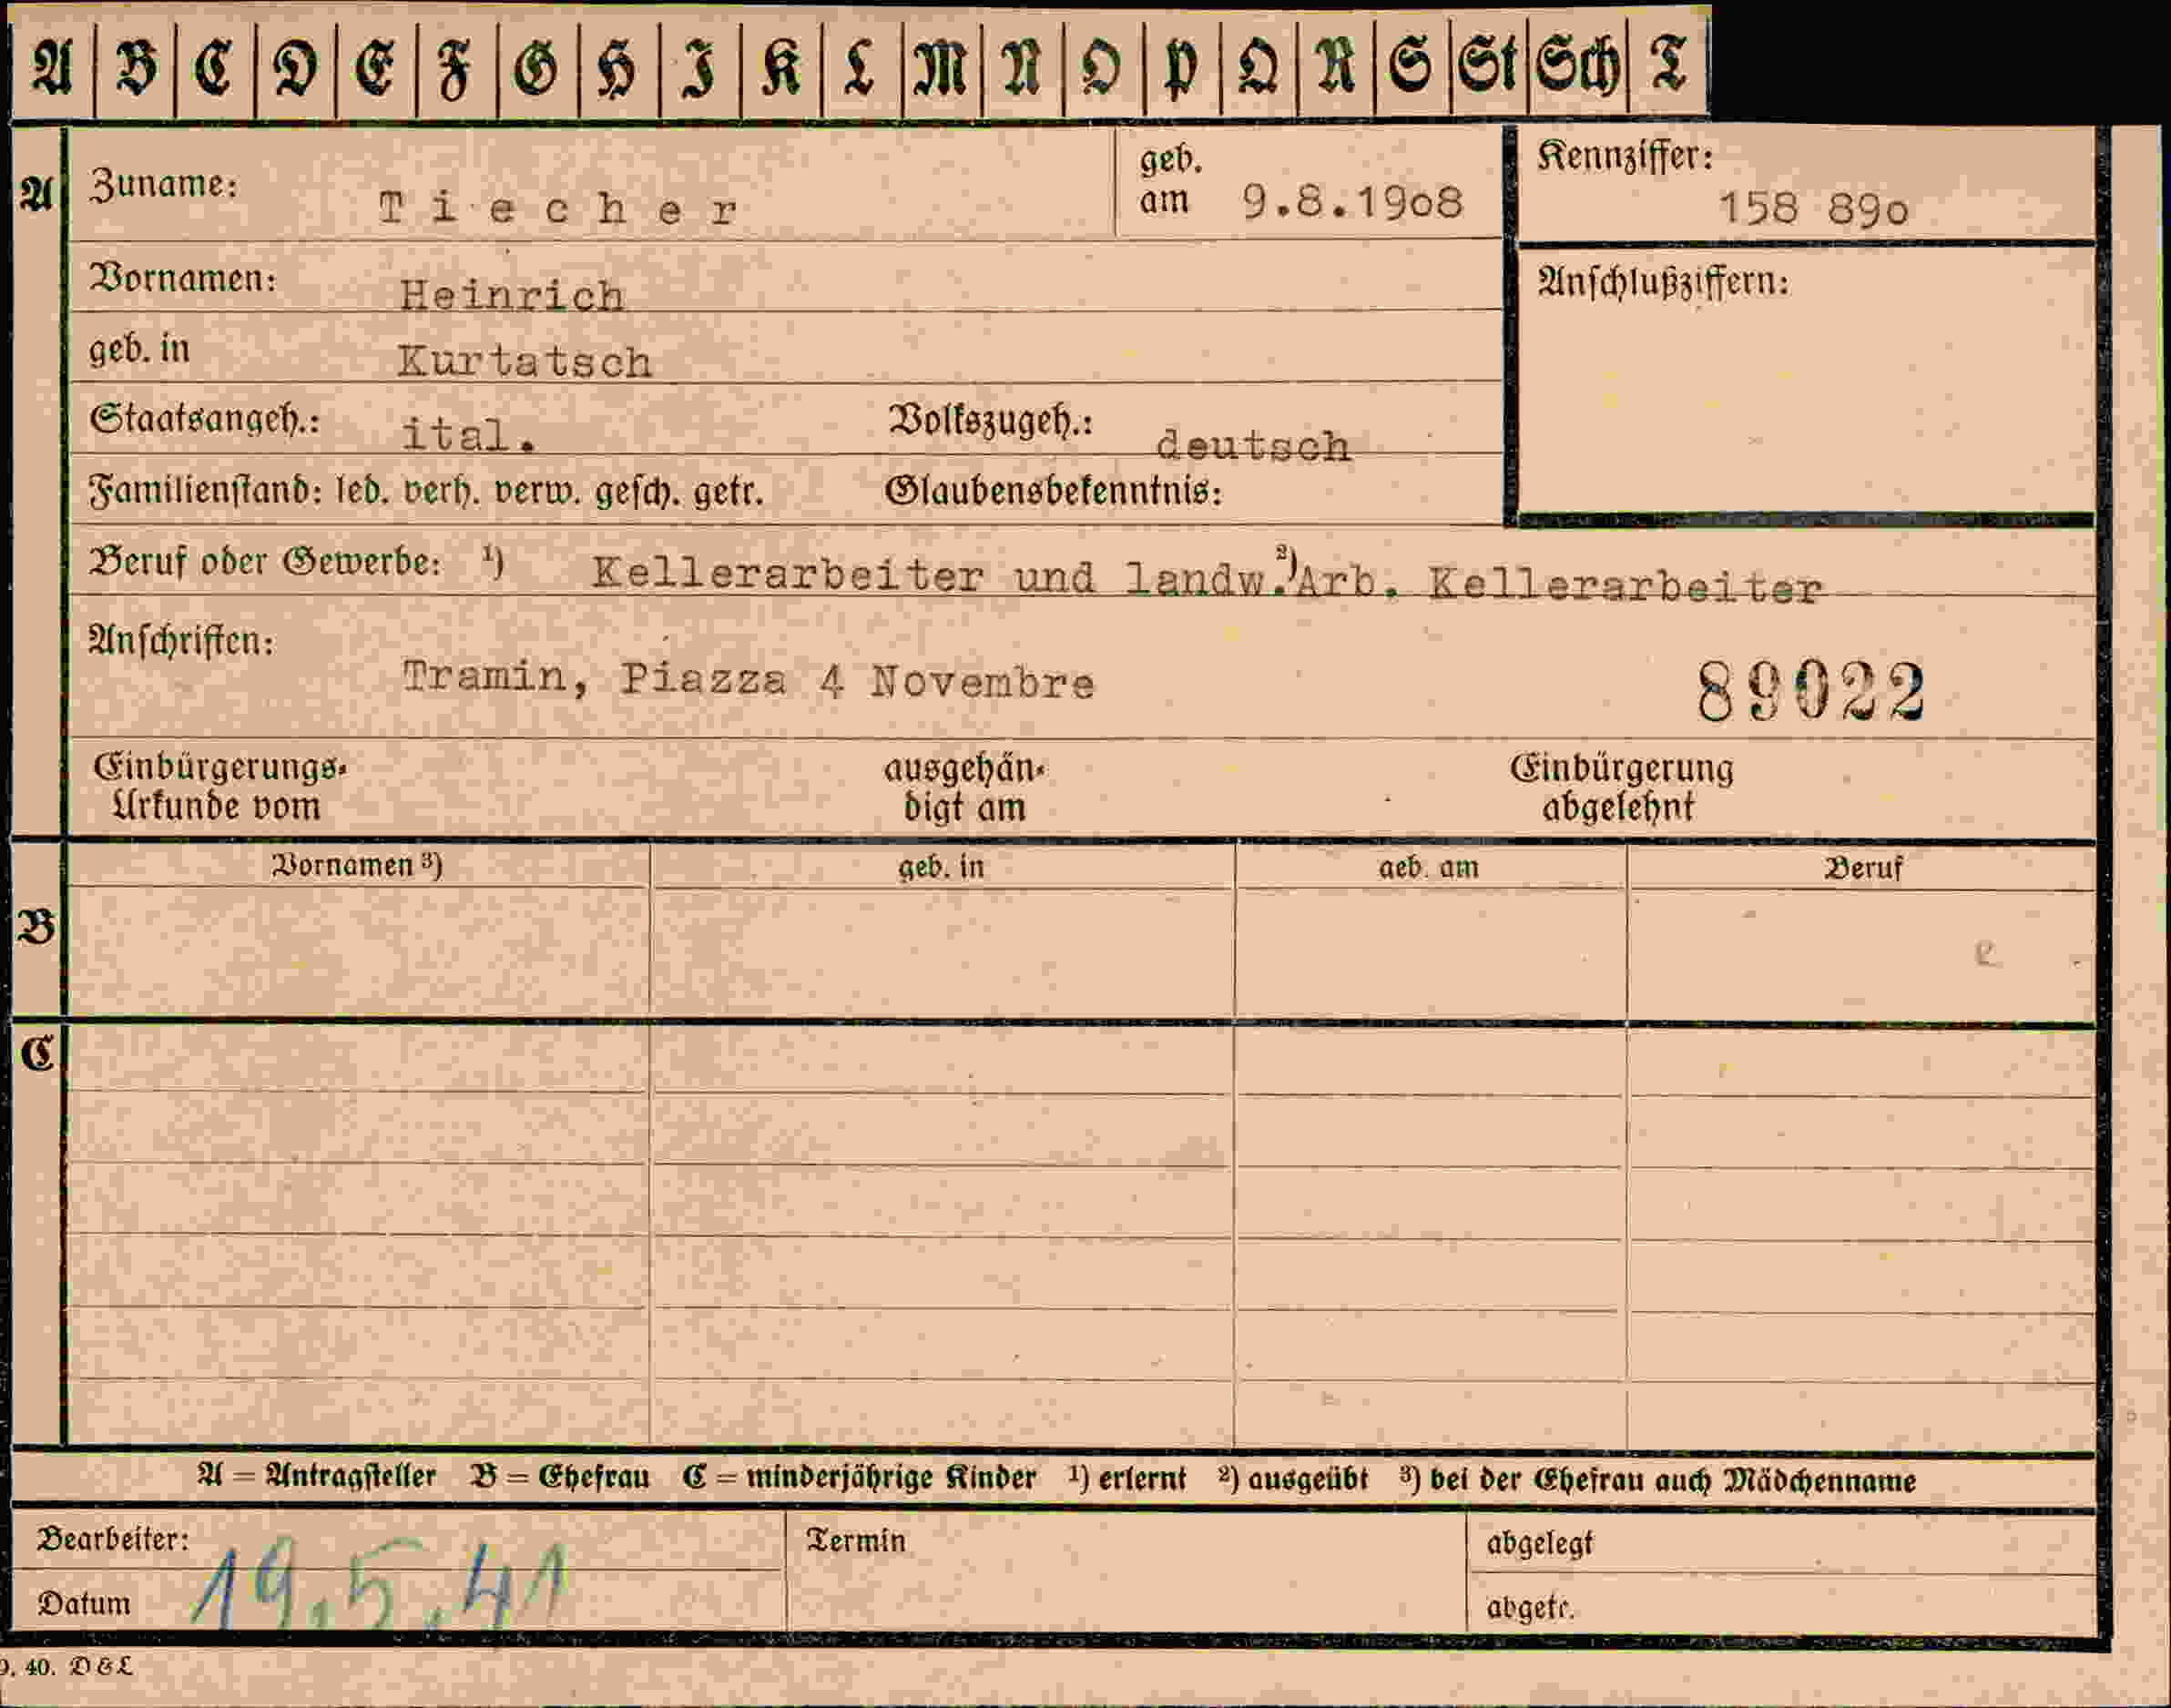 A B C D E F G H I K L M N O P Q R S St Sch T
A Zuname: Tiecher geb. am 9.8.19o8 Kennziffer: 158 89o
Vornamen: Heinrich Anschlußziffern:
geb. in Kurtatsch
Staatsangeh.: ital. Volkszugeh.: deutsch
Familienstand: led. verh. verw. gesch. getr. Glaubensbekenntnis:
Beruf oder Gewerbe: ¹) Kellerarbeiter und landw.²)Arb. Kellerarbeiter
Anschriften:
Tramin, Piazza 4 Novembre 89022
Einbürgerungs- ausgehän- Einbürgerung
Urkunde vom digt am abgelehnt
Vornamen ³) geb. in geb. am Beruf
B
C
A = Antragsteller B = Ehefrau C = minderjährige Kinder ¹) erlernt ²) ausgeübt ³) bei der Ehefrau auch Mädchenname
Bearbeiter: Termin abgelegt
Datum 19.5.41 abgetr.
9. 40. D & L